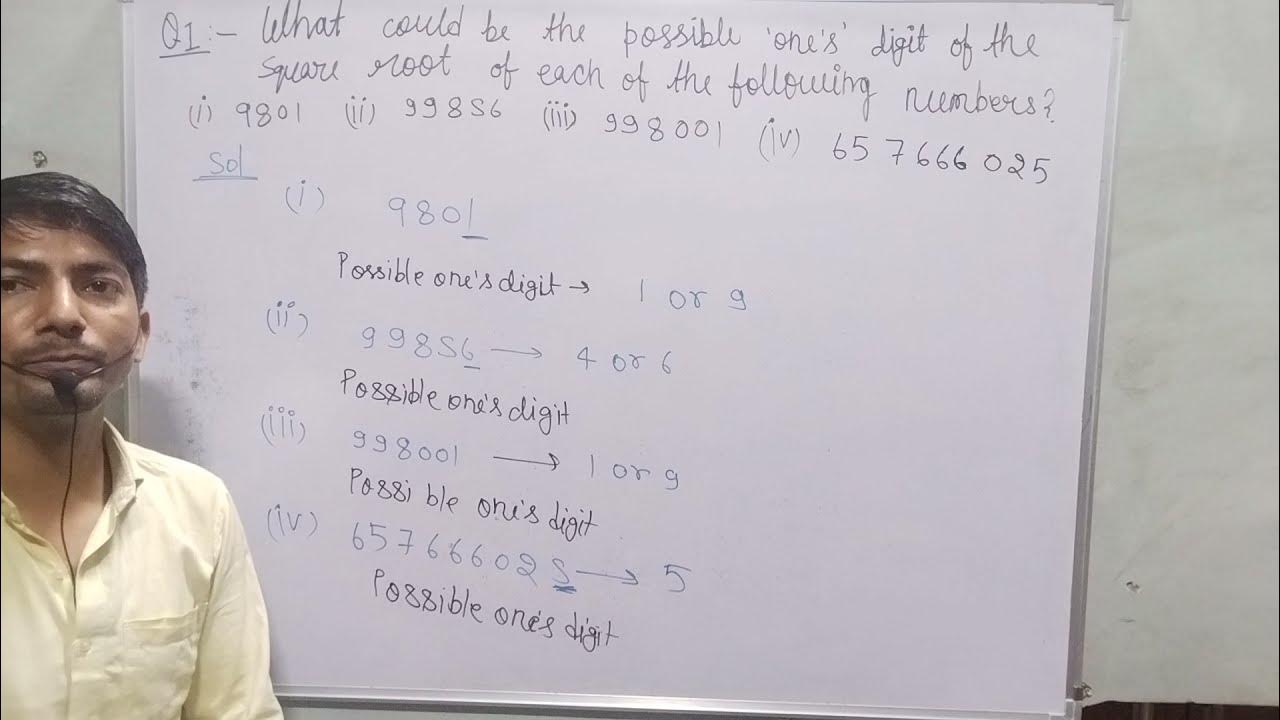 Q1:- What could be the possible 'one's' digit of the
square root of each of the following numbers?
(i) 9801 (ii) 99856 (iii) 998001 (iv) 657666025
Sol
(i) 9801
Possible one's digit → 1 or 9
(ii) 99856 → 4 or 6
Possible one's digit
(iii) 998001 → 1 or 9
Possible one's digit
(iv) 657666025 → 5
Possible one's digit